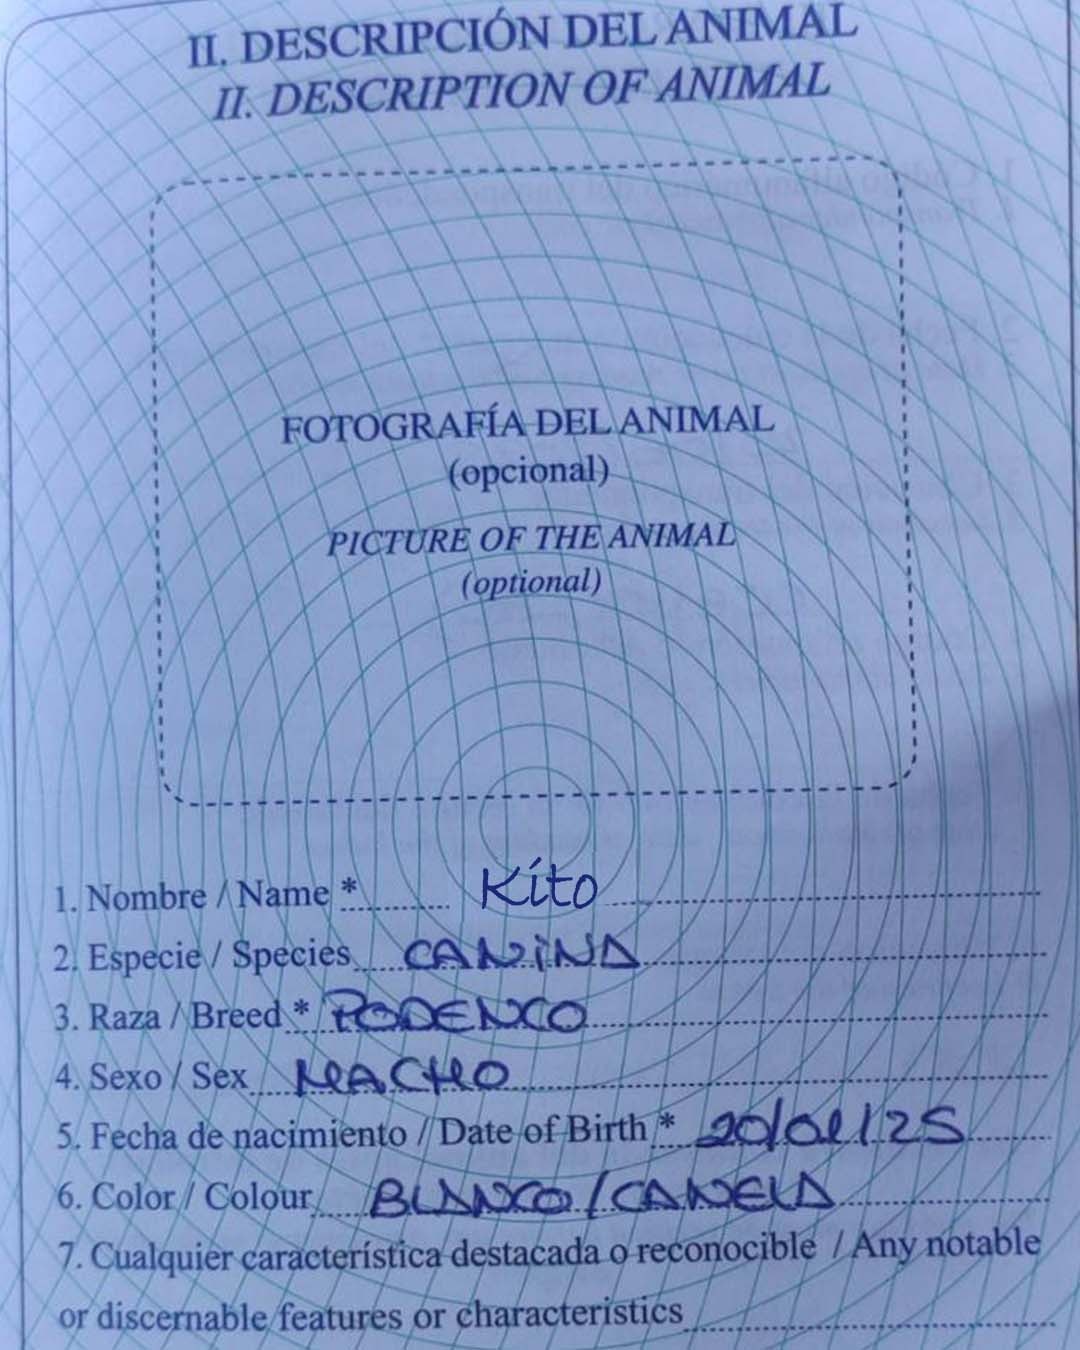 II. DESCRIPCIÓN DEL ANIMAL
II. DESCRIPTION OF ANIMAL
FOTOGRAFÍA DEL ANIMAL
(opcional)
PICTURE OF THE ANIMAL
(optional)
1. Nombre / Name * Kito
2. Especie / Species CANINA
3. Raza / Breed * PODENCO
4. Sexo / Sex MACHO
5. Fecha de nacimiento / Date of Birth * 20/01/25
6. Color / Colour BLANCO/CANELA
7. Cualquier característica destacada o reconocible / Any notable
or discernable features or characteristics